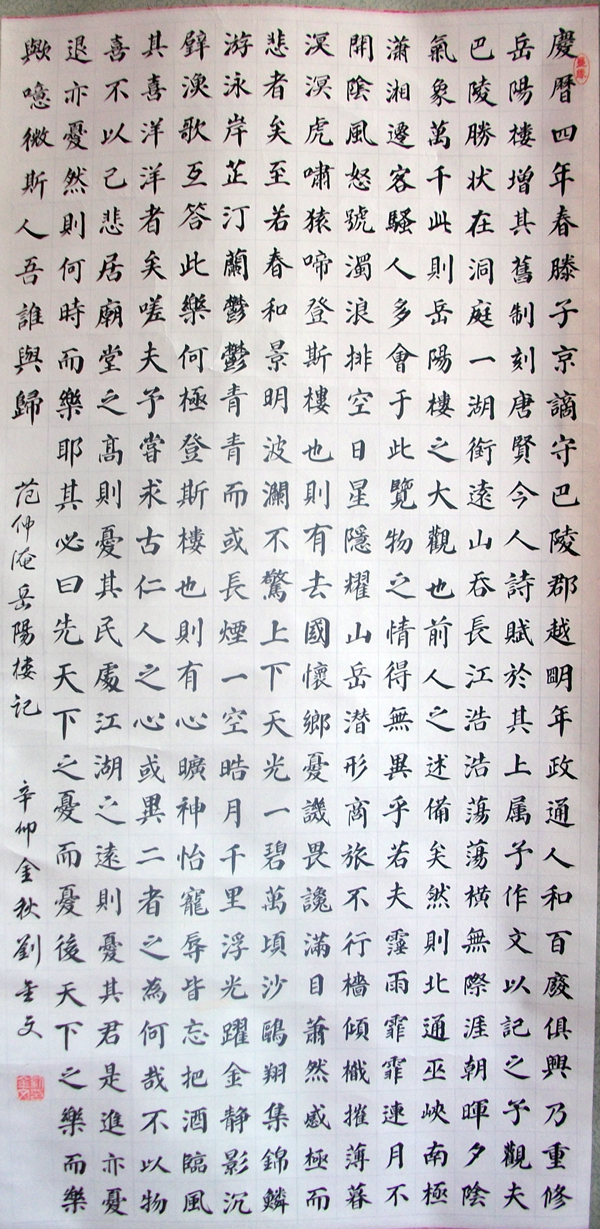 慶暦四年春滕子京謫守巴陵郡越朙年政通人和百廢俱興乃重修
岳陽樓增其舊制刻唐賢今人詩賦於其上属予作文以記之予觀夫
巴陵勝狀在洞庭一湖銜遠山吞長江浩浩蕩蕩橫無際涯朝暉夕陰
氣象萬千此則岳陽樓之大觀也前人之述備矣然則北通巫峽南極
瀟湘遷客騷人多會于此覽物之情得無異乎若夫霪雨霏霏連月不
開陰風怒號濁浪排空日星隱耀山岳潛形商旅不行檣傾檝摧薄暮
溟溟虎嘯猿啼登斯樓也則有去國懷鄉憂譏畏讒滿目蕭然感極而
悲者矣至若春和景明波瀾不驚上下天光一碧萬頃沙鷗翔集錦鱗
游泳岸芷汀蘭鬱鬱青青而或長煙一空皓月千里浮光躍金靜影沉
璧漁歌互答此樂何極登斯樓也則有心曠神怡寵辱皆忘把酒臨風
其喜洋洋者矣嗟夫予嘗求古仁人之心或異二者之為何哉不以物
喜不以己悲居廟堂之高則憂其民處江湖之遠則憂其君是進亦憂
退亦憂然則何時而樂耶其必曰先天下之憂而憂後天下之樂而樂
歟噫微斯人吾誰與歸 范仲淹岳陽楼记 辛卯金秋劉金文